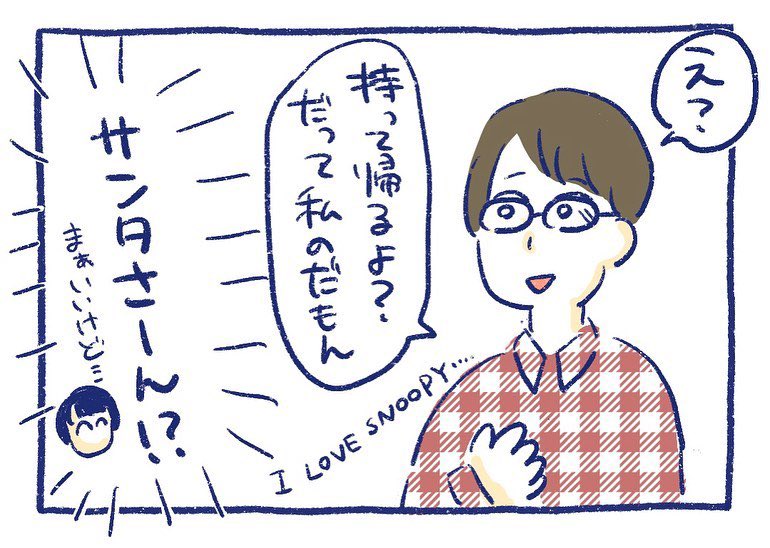 え?
持って帰るよ?
だって私のだもん
I LOVE SNOOPY....
サンタさーん!?
まぁいいけど…